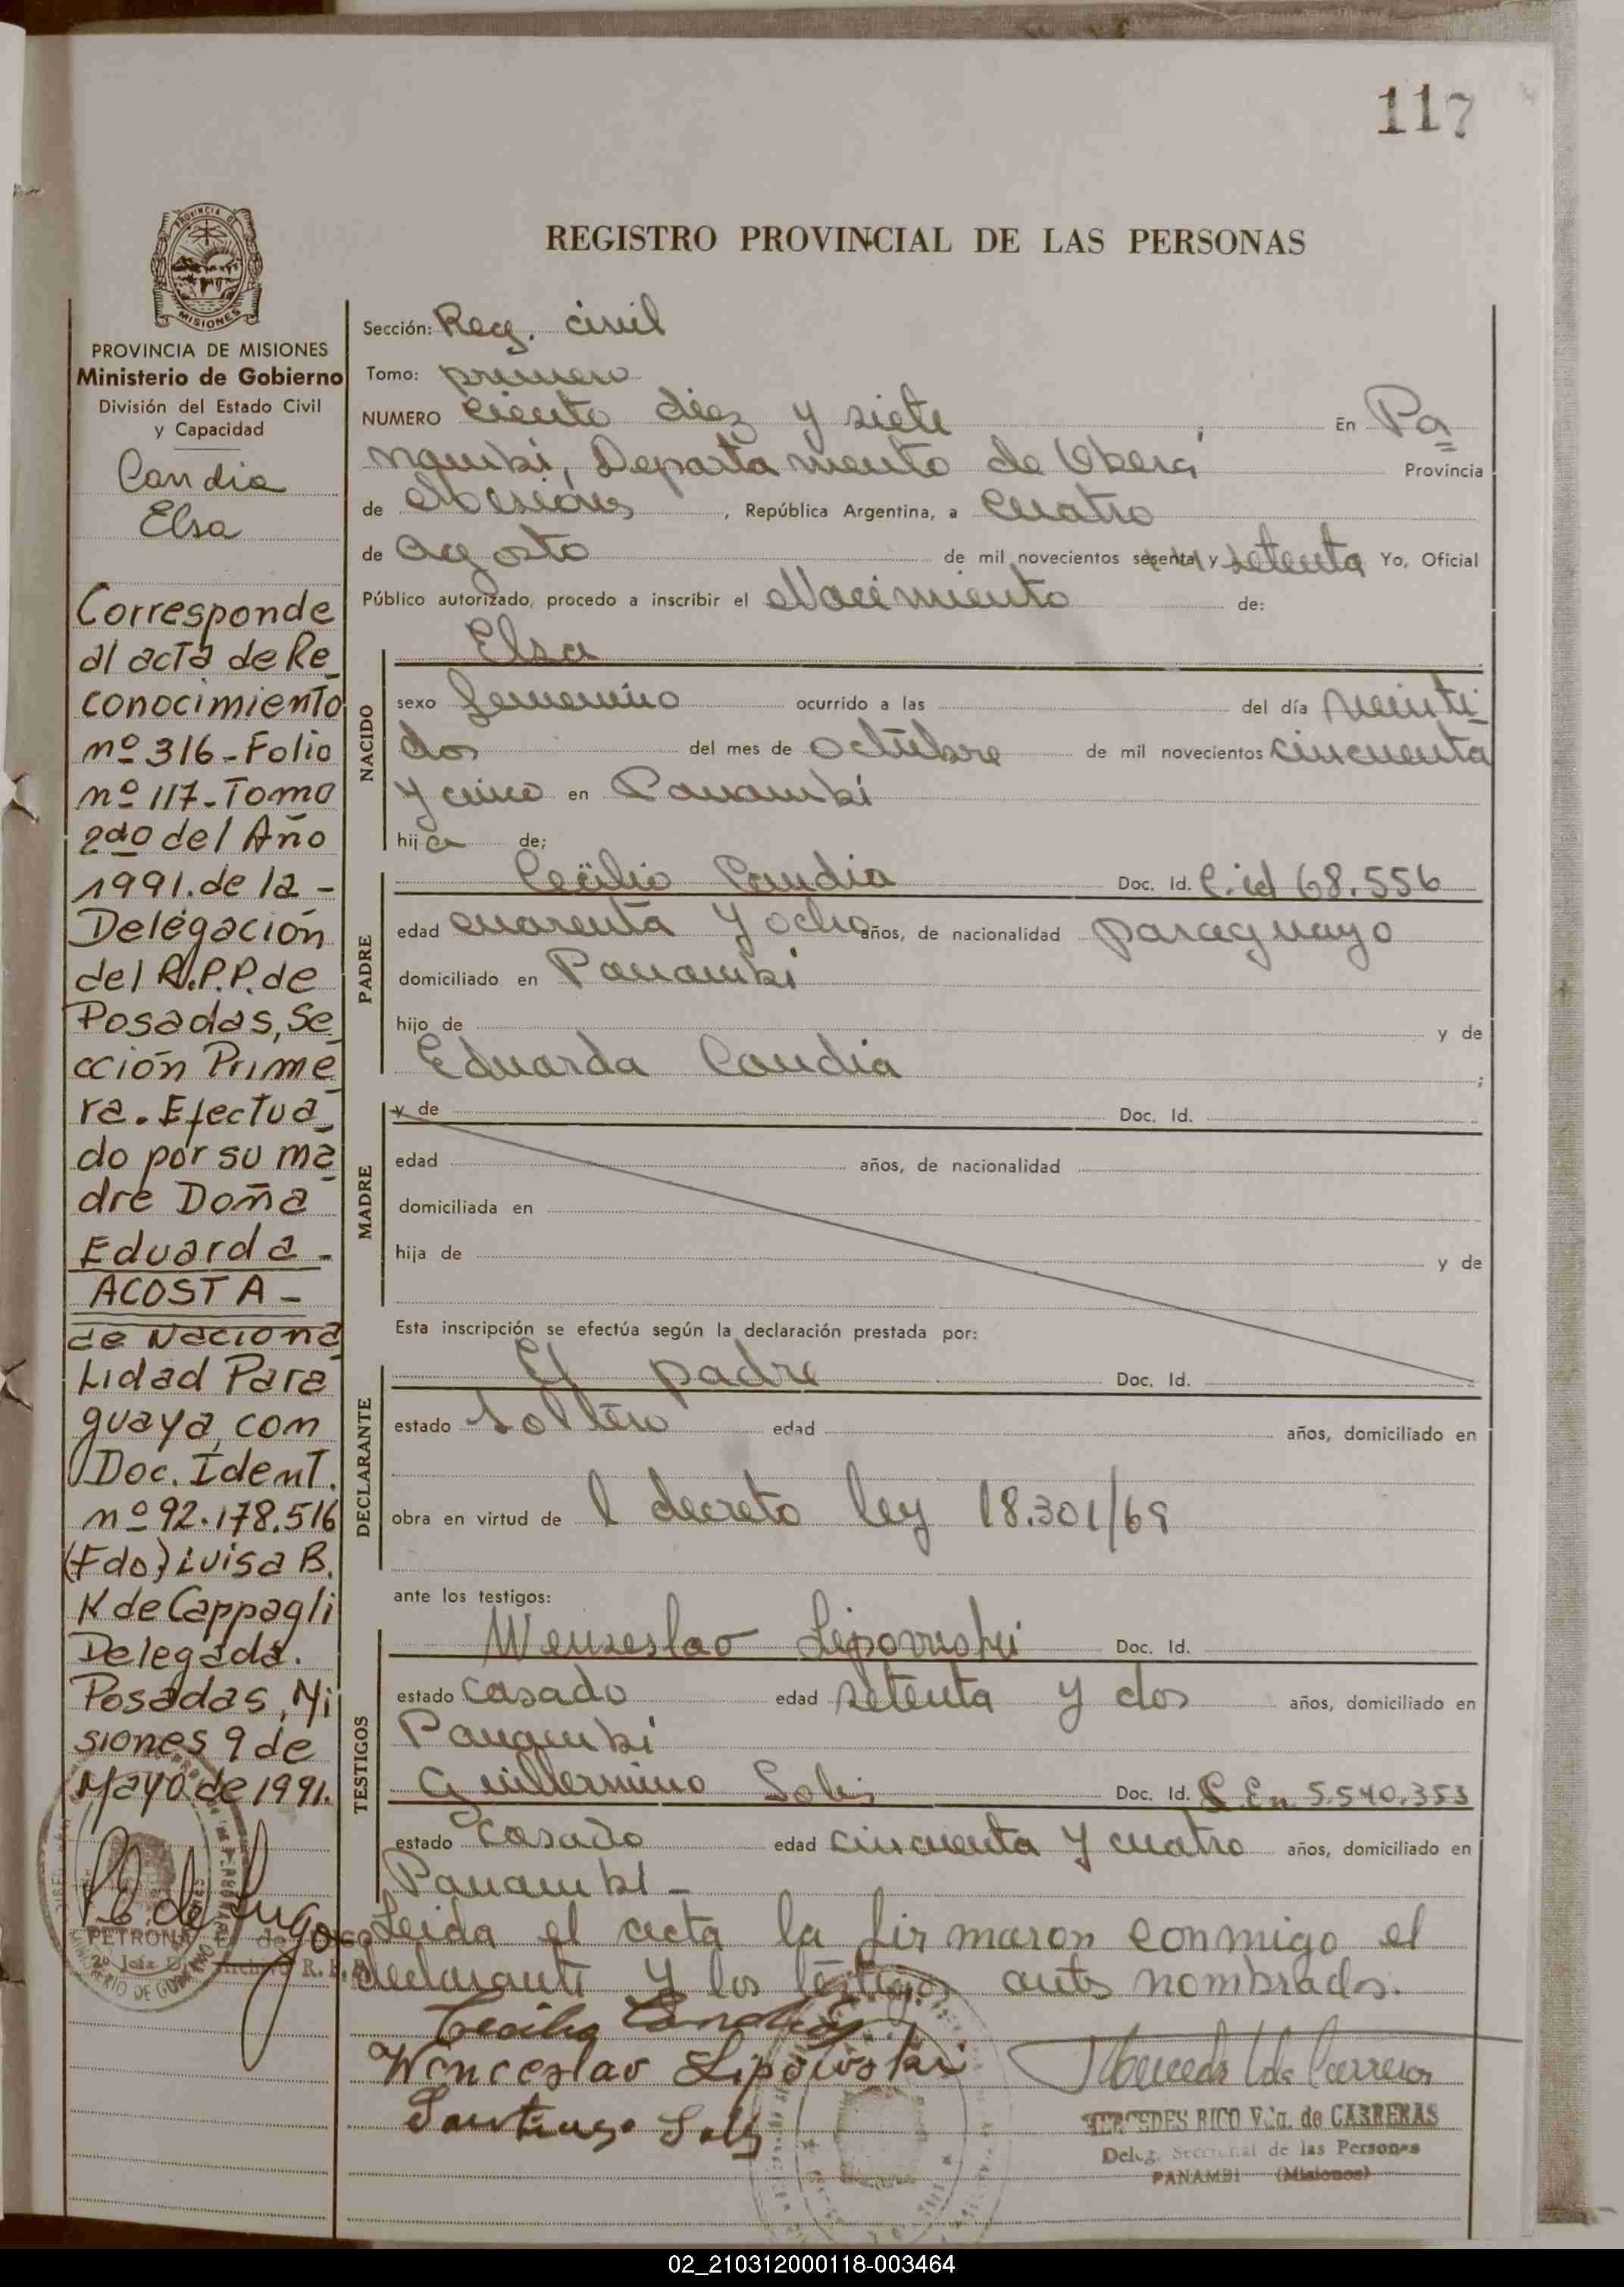 117
REGISTRO PROVINCIAL DE LAS PERSONAS
MISIONES
PROVINCIA DE MISIONES
Ministerio de Gobierno
División del Estado Civil
y Capacidad
Candia
Elsa
Corresponde
al acta de Re
conocimiento
nº 316-Folio
nº 117-Tomo
2do del Año
1991. de la -
Delegación
del R.P.P. de
Posadas, Se
cción Prime
ra. Efectua
do por su ma
dre Doña
Eduarda -
ACOSTA -
de Naciona
Lidad Para
guaya, con
Doc. Ident.
nº 92.178.516
(Fdo) Luisa B.
K de Cappagli
Delegada.
Posadas, Mi
siones 9 de
Mayo de 1991.
PETRONA
Sección: Reg. civil
Tomo: primero
NUMERO ciento diez y siete En Pa
nambi, Departamento de Oberá Provincia
de Misiones, República Argentina, a cuatro
de agosto de mil novecientos sesenta y setenta Yo, Oficial
Público autorizado, procedo a inscribir el Nacimiento de:
NACIDO
Elsa
sexo femenino ocurrido a las del día veinti
dos del mes de octubre de mil novecientos cincuenta
y cinco en Panambi
hija de;
PADRE
Cecilio Candia Doc. Id. C. id 68.556
edad cuarenta y ocho años, de nacionalidad paraguayo
domiciliado en Panambi
hijo de y de
Eduarda Candia ;
MADRE
y de Doc. Id.
edad años, de nacionalidad
domiciliada en
hija de y de
Esta inscripción se efectúa según la declaración prestada por:
DECLARANTE
El padre Doc. Id.
estado Soltero edad años, domiciliado en
obra en virtud de l decreto ley 18.301/69
ante los testigos:
TESTIGOS
Wenseslao Lipowski Doc. Id.
estado casado edad setenta y dos años, domiciliado en
Panambi
Guillermino Solis Doc. Id. L.En. 5.540.353
estado casado edad cincuenta y cuatro años, domiciliado en
Panambi -
Leida el acta la firmaron conmigo el
declarante y los testigos antes nombrados.
Cecilio Candia
Wenceslao Lipowski
Santiago Solis
MERCEDES RICO Vda. de CARRERAS
Deleg. Seccional de las Personas
PANAMBI (Misiones)
02_210312000118-003464